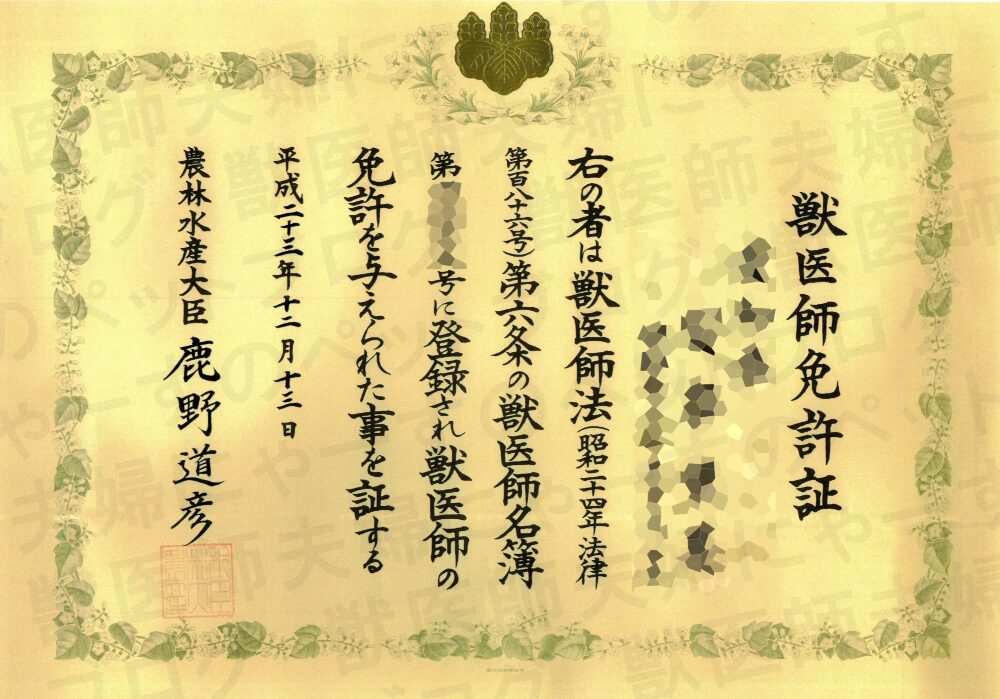 獣医師免許証
右の者は獣医師法（昭和二十四年法律
第百八十六号）第六条の獣医師名簿
第
号に登録され獣医師の
免許を与えられた事を証する
平成二十三年十二月十三日
農林水産大臣 鹿野道彦